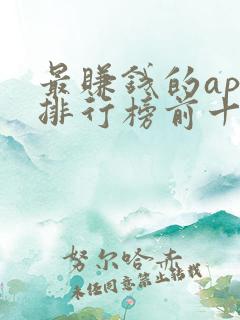 最赚钱的ap
排行榜前十
努尔哈赤
未经同意禁止转载